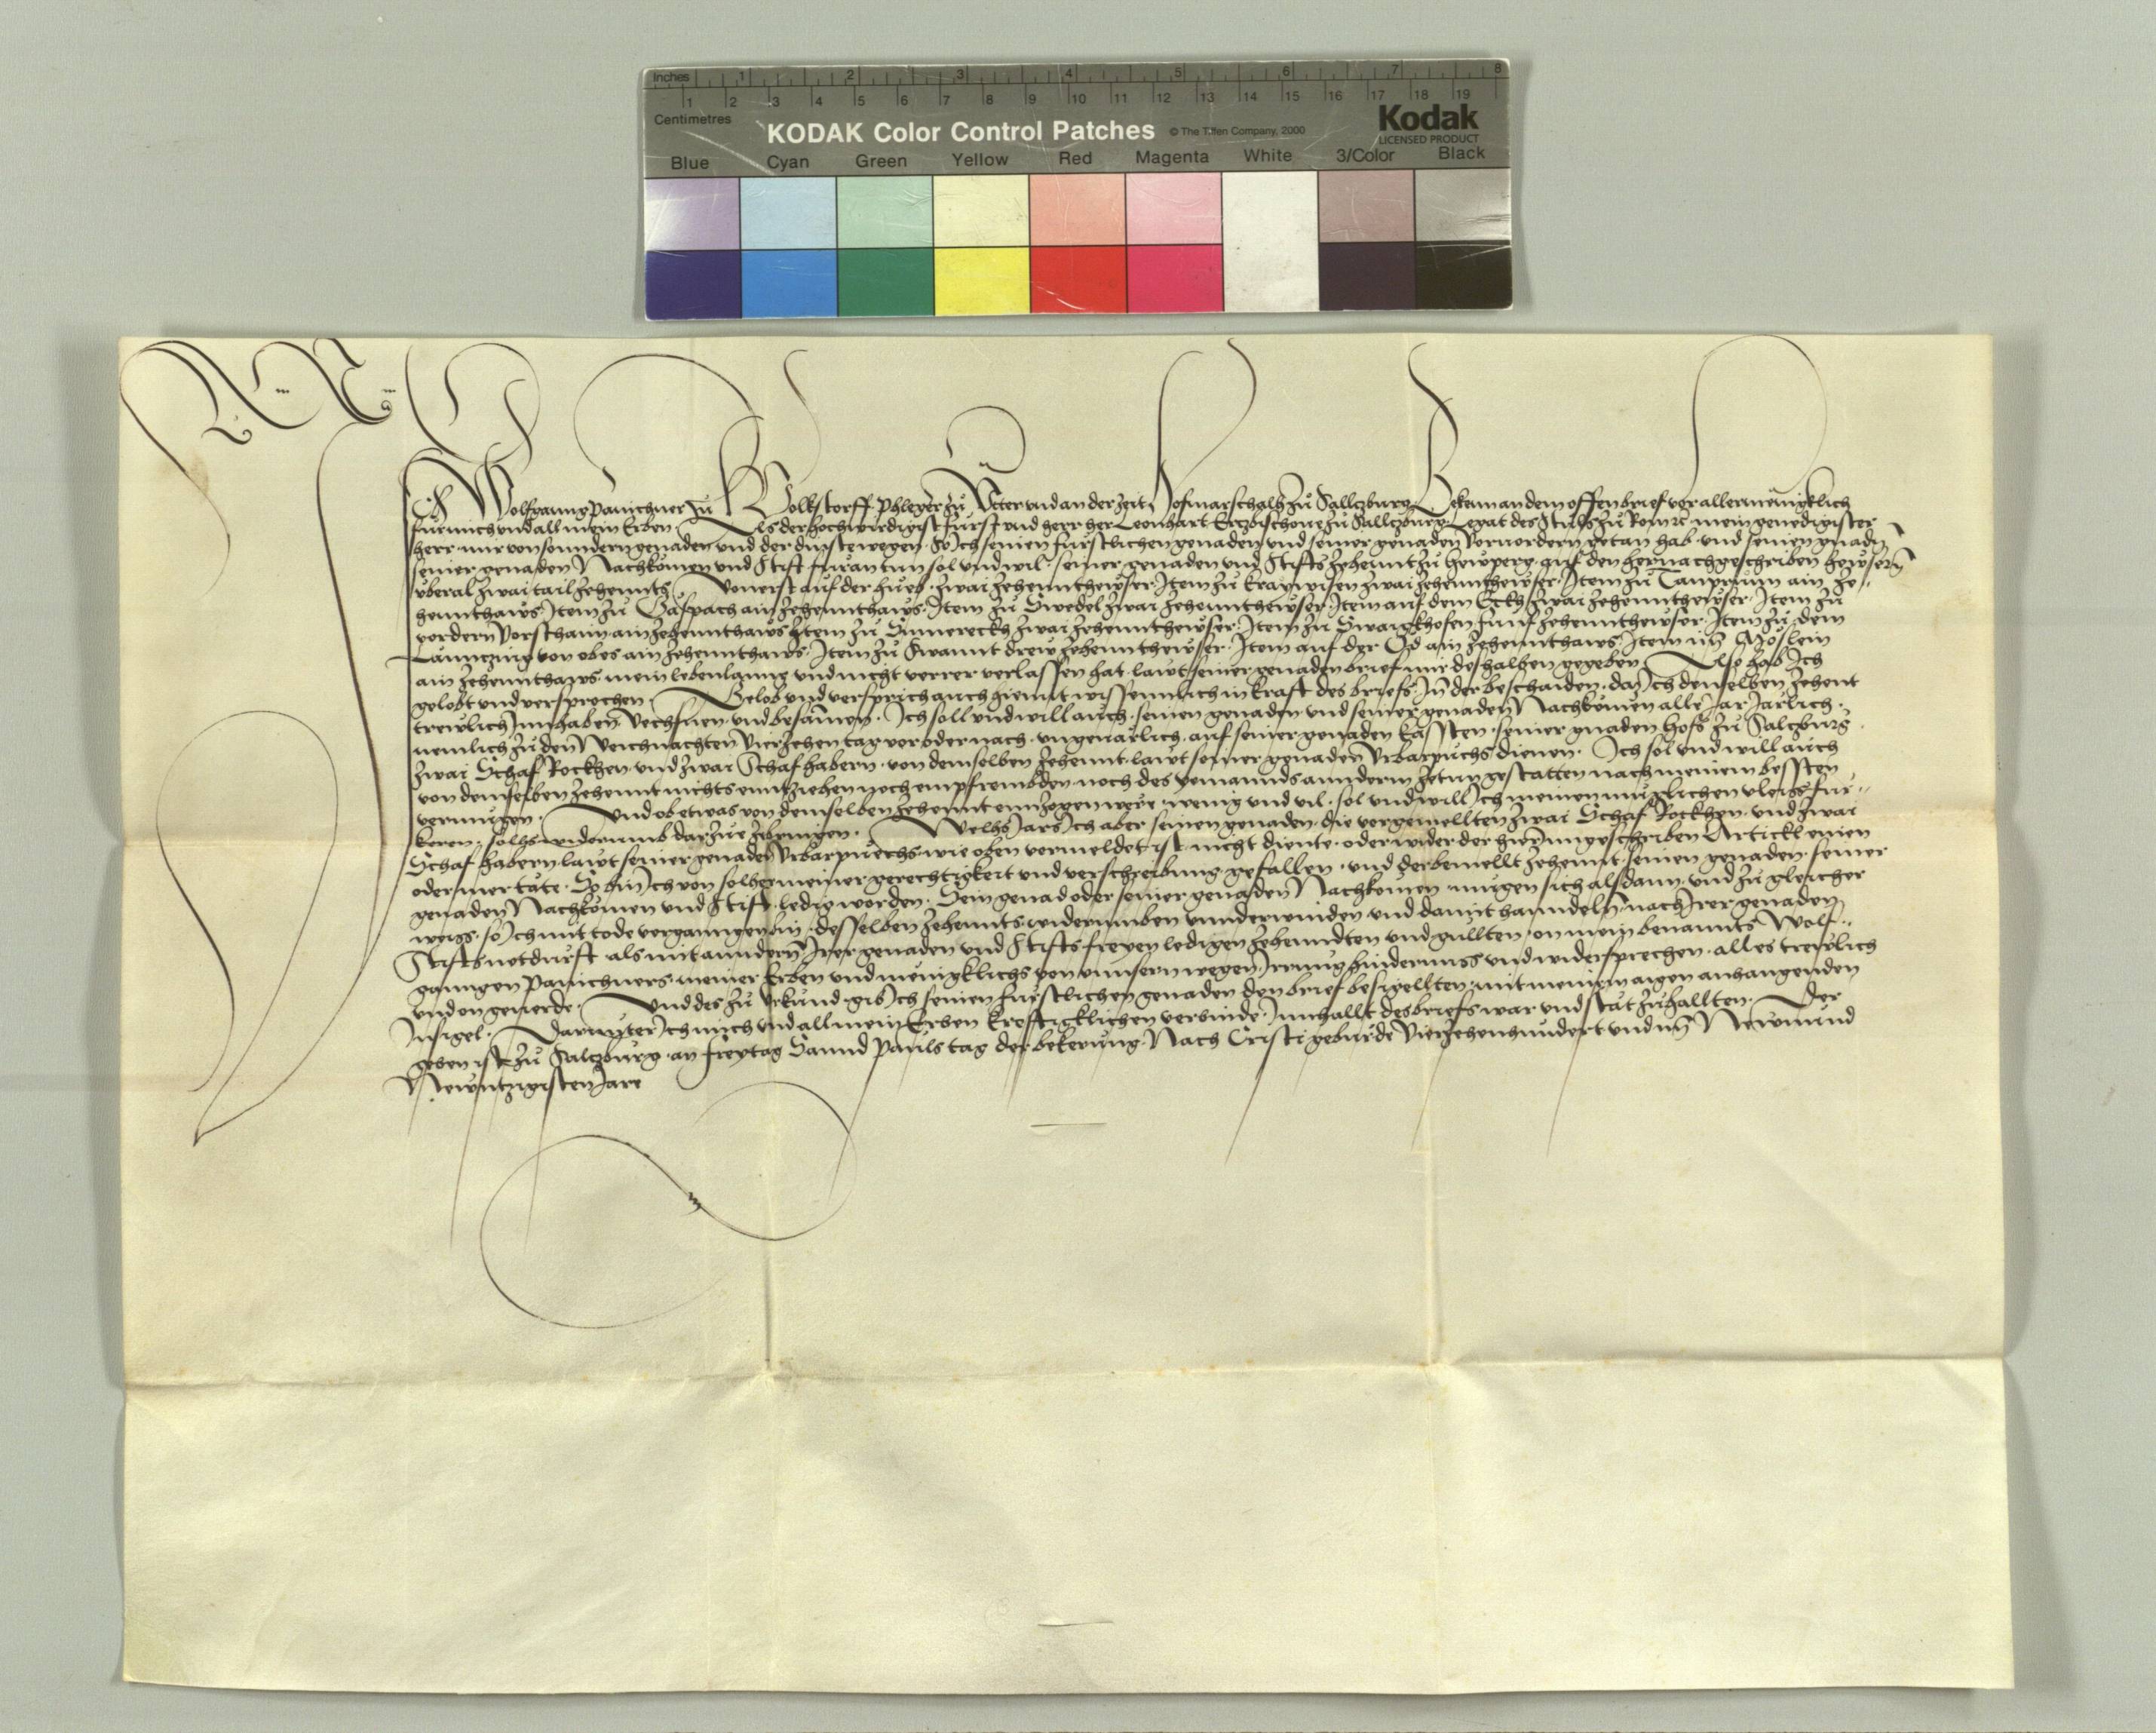 Inches 1 2 3 4 5 6 7 8
1 2 3 4 5 6 7 8 9 10 11 12 13 14 15 16 17 18 19
Centimetres
KODAK Color Control Patches © The Tiffen Company, 2000 Kodak
LICENSED PRODUCT
Blue Cyan Green Yellow Red Magenta White 3/Color Black
Ich Wolfganng Panichner zu Volkstorff Phleger zu Ӱtter und an der Zeit Hofmarschalh zu Salltzburg Beken an dem offen brief vor allermenigklich
fur mich und all mein Erben. Als der hochwirdigist furst und herr her Leonhart Ertzbischove zu Salltzburg Legat des Stuls zu Rom ꝛc mein genedigister
herr mir von sonndern genaden und der dinste wegen So Ich seinen furstlichen genaden und seiner genaden vorvordern getan hab und seinen gnadn̄
seiner genaden Nachkomen und Stift furan tun sol und wil seiner genaden und Stifts zehennt zu hewperg auf den hernachgeschriben hewsern̄
uberal zwai tail zehennts. Vonerst auf der hueb zwai zehennthewser Item zu Kraywisen zwai zehennthewser Item zu Tanprunn ain ze-
hennthaws Item zu Gaspach ain zehennthaws Item zu Gwedel zwai zehennthewser Item auf dem Eckh zwai zehennthewser Item zu
vordern Vorschann ain zehennthaws Item zu Sinnereckh zwai zehennthewser Item zu Swaigkhofen funf zehennthewser Item zu dem
Launtzing von obes ain zehennthaws Item zu Swannt drew zehennthewser Item auf der Öd ain zehennthaws Item im Möslein
ain zehennthaws mein lebenlanng und nicht verrer verlassen hat lawt seiner genaden brief mir deshalben gegeben Also hab Ich
gelobt und versprechen Gelob und versprich auch hiemit wissenntlich in kraft des briefs In der beschaiden daz Ich denselben zehent
trewlich Innhaben vechsnen und besamen. Ich soll und will auch seinen genaden und seiner genaden Nachkomen alle Jar Järlich
nemlich zu den Weichnachten vierzehen tag vor oder nach ungevärlich auf seiner genaden kassten seiner gnaden hofs zu Saltzburg
zwai Schaf Rockhen und zwai Schaf habern von demselben zehennt lawt seiner genaden Urbarpuchs dienen. Ich sol und will auch
von demselben zehennt nichts enntziehen noch empfrembden noch des yemannds anndern zetun gestatten nach meinem bessten
vermugen. Und ob etwas von demselben zehennt enntzogen were wenig und vil sol und will Ich meinen muglichen vleiss fur-
keren solhs widerumb darzue zebringen. Welhs Jars Ich aber seinen genaden die vorgemellten zwai Schaf Rockhen und zwai
Schaf habern lawt seiner genaden Urbarpuechs wie oben vermeldet ist nicht diente oder wider der hierinngeschriben Artickl einen
oder mer täte. So bin Ich von solher meiner gerechtigkeit und verschreibung gefallen und der bemellt zehennt seinen genaden seiner
genaden Nachkomen und Stift ledig worden. Sein genad oder seiner genaden Nachkomen mugen sich alsdann und zu gleicher
weiss so Ich mit tode verganngen bin desselben zehennts widerumben unnderwinden und damit hanndeln nach Irer genaden
Stifts notdurft als mit anndern Irer genaden und Stifts freyen ledigen zehenndten und gullten on mein benannts Wolf-
ganngen Panichners meiner Erben und menigklichs von unnsern wegen Irrung hindernuss und widersprechen alles trewlich
und on geverde. Und des zu urkund gib Ich seinen furstlichen genaden den brief besigellten mit meinem aigen anhangenden
Insigel. Darunter Ich mich und all mein Erben kreftigklichen verbinde Innhallt des briefs war und stät zuhallten. Der
geben ist zu Saltzburg an freytag Sannd Pauls tag der bekerung Nach Cristi geburde Vierzehenhundert und im Newnund
Newntzigisten Jare